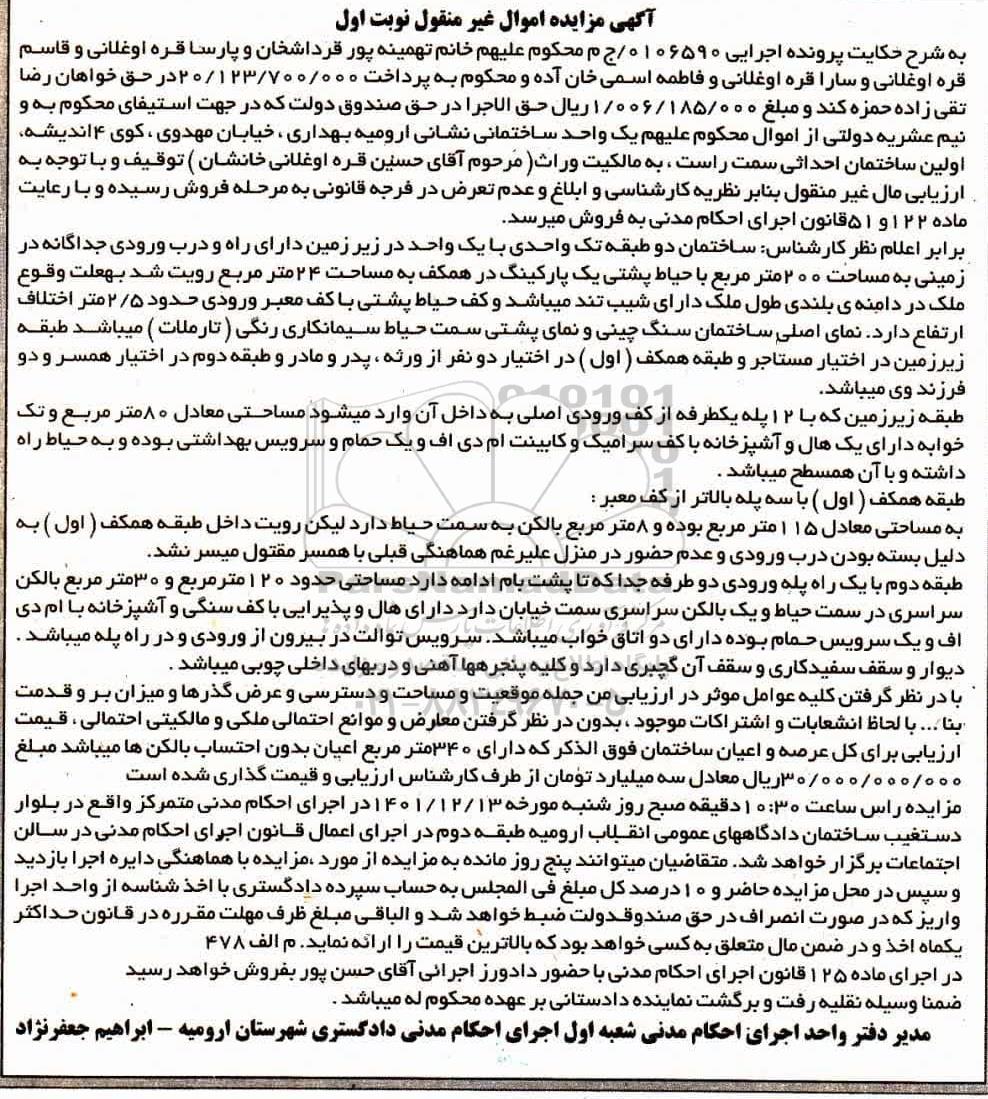 آگهی مزایده اموال غیر منقول نوبت اول
به شرح حکایت پرونده اجرایی ۰۱۰۶۵۹۰/ج م محکوم علیهم خانم تهمینه پور قرداشخان و پارسا قره اوغلانی و قاسم
قره اوغلانی و سارا قره اوغلانی و فاطمه اسمی خان آده و محکوم به پرداخت ۲۰/۱۲۳/۷۰۰/۰۰۰در حق خواهان رضا
تقی زاده حمزه کند و مبلغ ۱/۰۰۶/۱۸۵/۰۰۰ریال حق الاجرا در حق صندوق دولت که در جهت استیفای محکوم به و
نیم عشریه دولتی از اموال محکوم علیهم یک واحد ساختمانی نشانی ارومیه بهداری ، خیابان مهدوی ، کوی ۴اندیشه،
اولین ساختمان احداثی سمت راست ، به مالکیت وراث( مرحوم آقای حسین قره اوغلانی خانشان ) توقیف و با توجه به
ارزیابی مال غیر منقول بنابر نظریه کارشناسی و ابلاغ و عدم تعرض در فرجه قانونی به مرحله فروش رسیده و با رعایت
ماده ۱۲۲و ۵۱قانون اجرای احکام مدنی به فروش میرسد.
برابر اعلام نظر کارشناس: ساختمان دو طبقه تک واحدی با یک واحد در زیر زمین دارای راه و درب ورودی جداگانه در
زمینی به مساحت ۲۰۰متر مربع با حیاط پشتی یک پارکینگ در همکف به مساحت ۲۴متر مربع رویت شد بهعلت وقوع
ملک در دامنه ی بلندی طول ملک دارای شیب تند میباشد و کف حیاط پشتی با کف معبر ورودی حدود ۲/۵متر اختلاف
ارتفاع دارد. نمای اصلی ساختمان سنگ چینی و نمای پشتی سمت حیاط سیمانکاری رنگی ( تارملات ) میباشد طبقه
زیرزمین در اختیار مستاجر و طبقه همکف ( اول ) در اختیار دو نفر از ورثه ، پدر و مادر و طبقه دوم در اختیار همسر و دو
فرزند وی میباشد.
طبقه زیرزمین که با ۱۲پله یکطرفه از کف ورودی اصلی به داخل آن وارد میشود مساحتی معادل ۸۰متر مربع و تک
خوابه دارای یک هال و آشپزخانه با کف سرامیک و کابینت ام دی اف و یک حمام و سرویس بهداشتی بوده و به حیاط راه
داشته و با آن همسطح میباشد .
طبقه همکف ( اول ) با سه پله بالاتر از کف معبر :
به مساحتی معادل ۱۱۵متر مربع بوده و ۸متر مربع بالکن به سمت حیاط دارد لیکن رویت داخل طبقه همکف ( اول ) به
دلیل بسته بودن درب ورودی و عدم حضور در منزل علیرغم هماهنگی قبلی با همسر مقتول میسر نشد.
طبقه دوم با یک راه پله ورودی دو طرفه جدا که تا پشت بام ادامه دارد مساحتی حدود ۱۲۰مترمربع و ۳۰متر مربع بالکن
سراسری در سمت حیاط و یک بالکن سراسری سمت خیابان دارد دارای هال و پذیرایی با کف سنگی و آشپزخانه با ام دی
اف و یک سرویس حمام بوده دارای دو اتاق خواب میباشد. سرویس توالت در بیرون از ورودی و در راه پله میباشد .
دیوار و سقف سفیدکاری و سقف آن گچبری دارد و کلیه پنجرهها آهنی و دربهای داخلی چوبی میباشد .
با در نظر گرفتن کلیه عوامل موثر در ارزیابی من جمله موقعیت و مساحت و دسترسی و عرض گذرها و میزان بر و قدمت
بنا... با لحاظ انشعابات و اشتراکات موجود ، بدون در نظر گرفتن معارض و موانع احتمالی ملکی و مالکیتی احتمالی ، قیمت
ارزیابی برای کل عرصه و اعیان ساختمان فوق الذکر که دارای ۳۴۰متر مربع اعیان بدون احتساب بالکن ها میباشد مبلغ
۳۰/۰۰۰/۰۰۰/۰۰۰ریال معادل سه میلیارد تومان از طرف کارشناس ارزیابی و قیمت گذاری شده است
مزایده راس ساعت ۱۰:۳۰دقیقه صبح روز شنبه مورخه ۱۴۰۱/۱۲/۱۳در اجرای احکام مدنی متمرکز واقع در بلوار
دستغیب ساختمان دادگاههای عمومی انقلاب ارومیه طبقه دوم در اجرای اعمال قانون اجرای احکام مدنی در سالن
اجتماعات برگزار خواهد شد. متقاضیان میتوانند پنج روز مانده به مزایده از مورد ،مزایده با هماهنگی دایره اجرا بازدید
و سپس در محل مزایده حاضر و ۱۰درصد کل مبلغ فی المجلس به حساب سپرده دادگستری با اخذ شناسه از واحد اجرا
واریز که در صورت انصراف در حق صندوقدولت ضبط خواهد شد و الباقی مبلغ ظرف مهلت مقرره در قانون حداکثر
یکماه اخذ و در ضمن مال متعلق به کسی خواهد بود که بالاترین قیمت را ارائه نماید. م الف ۴۷۸
در اجرای ماده ۱۲۵قانون اجرای احکام مدنی با حضور دادورز اجرائی آقای حسن پور بفروش خواهد رسید
ضمنا وسیله نقلیه رفت و برگشت نماینده دادستانی بر عهده محکوم له میباشد .
مدیر دفتر واحد اجرای احکام مدنی شعبه اول اجرای احکام مدنی دادگستری شهرستان ارومیه – ابراهیم جعفرنژاد
ParsNamadData
۰۲۱-۸۸۳۴۹۶۷۰-۵